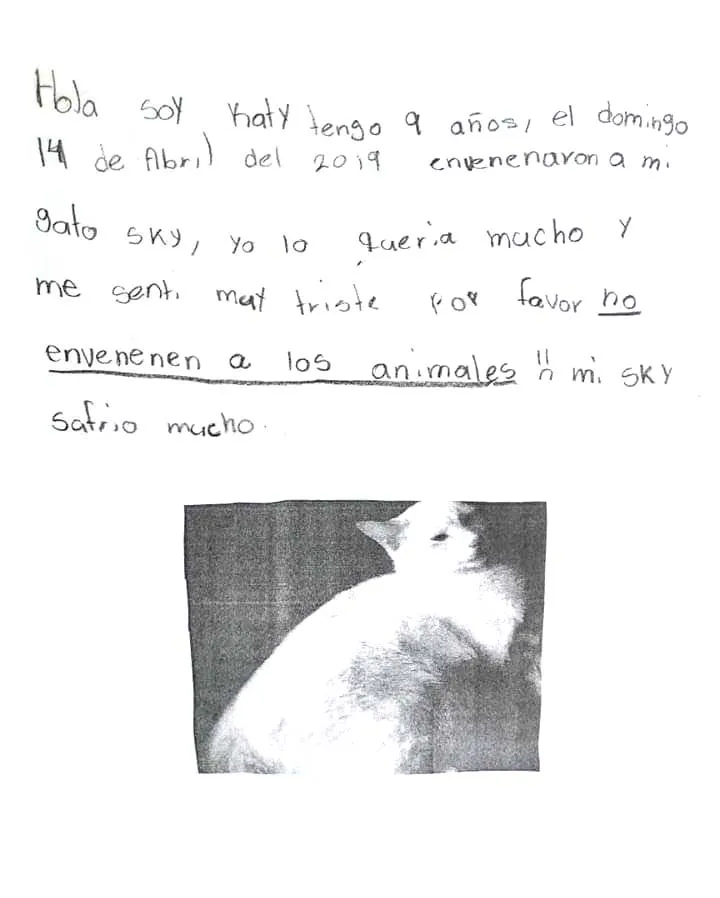 Hola soy Katy tengo 9 años, el domingo
14 de Abril del 2019 envenenaron a mi
gato sky, yo lo queria mucho y
me senti muy triste por favor no
envenenen a los animales !! mi SKY
safrio mucho.